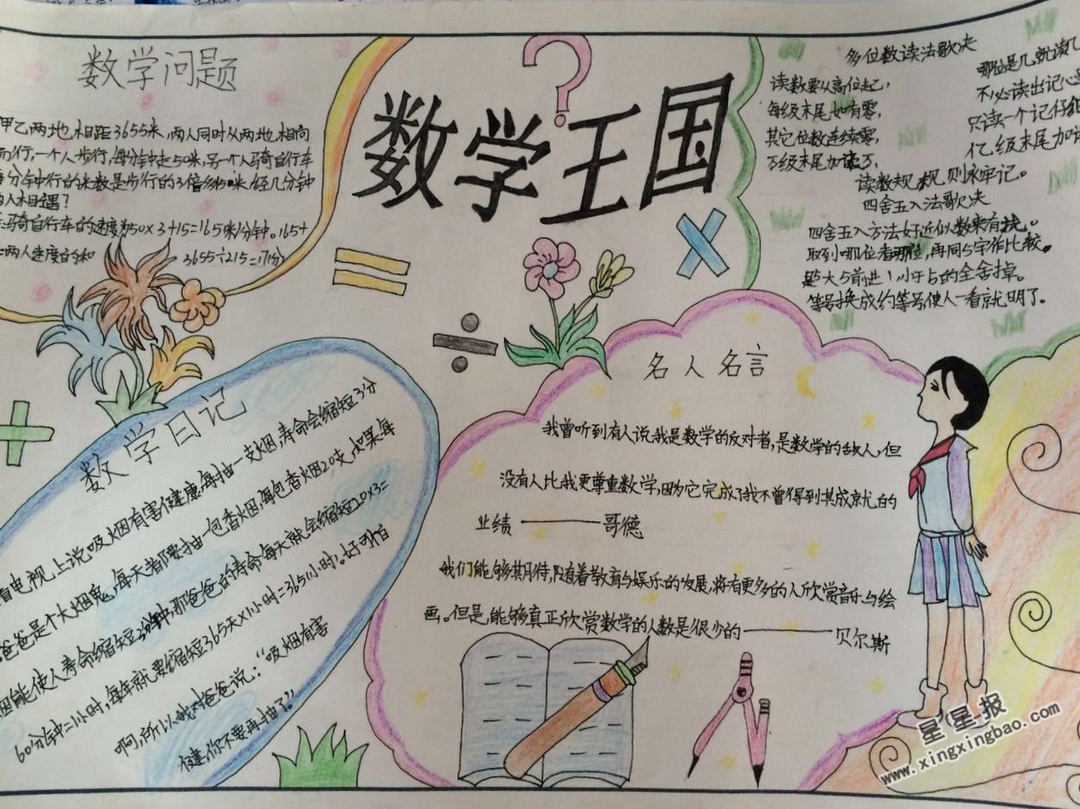 数学王国
数学问题
甲乙两地,相距3655米,两人同时从两地,相向
而行,一个人步行,每分钟走50米,另一个人骑自行车
分钟行的米数是步行的3倍多 米,经几分钟
人相遇?
骑自行车的速度 50×3+15=165米/分钟。165+
两人速度的和 3655÷215=17(分)
多位数读法歌决
读数要从高位起,
每级末尾如有零,
其它位数连续零,
万级末尾加读万,
哪位是几就读几
不必读出记心
只读一个记仔细
亿级末尾加
读数规 规则永牢记。
四舍五入法歌决
四舍五入方法好近似数来有找。
取到哪位看那位,再同5字作比较。
是大5前进1小于5的全舍掉。
等号换成约等号使人一看就明了。
数学日记
看电视上说吸烟有害健康,每抽一支烟,寿命会缩短3分
爸爸是个大烟鬼,每天都要抽一包香烟,每包香烟20支,如果每
烟能使人寿命缩短 钟,那爸爸的寿命每天就会缩短20×3=
60分钟=1小时,每年就要缩短365天×1小时=365小时。好可怕
啊,所以我对爸爸说:“吸烟有害
健,你不要再抽了?!
名人名言
我曾听到有人说我是数学的反对者,是数学的敌人,但
没有人比我更尊重数学,因为它完成了我不曾得到其成就的
业绩——哥德
我们能够期待,随着教育与娱乐的发展,将有更多的人欣赏音乐与绘
画。但是,能够真正欣赏数学的人数是很少的——贝尔斯
星星报
www.xingxingbao.com